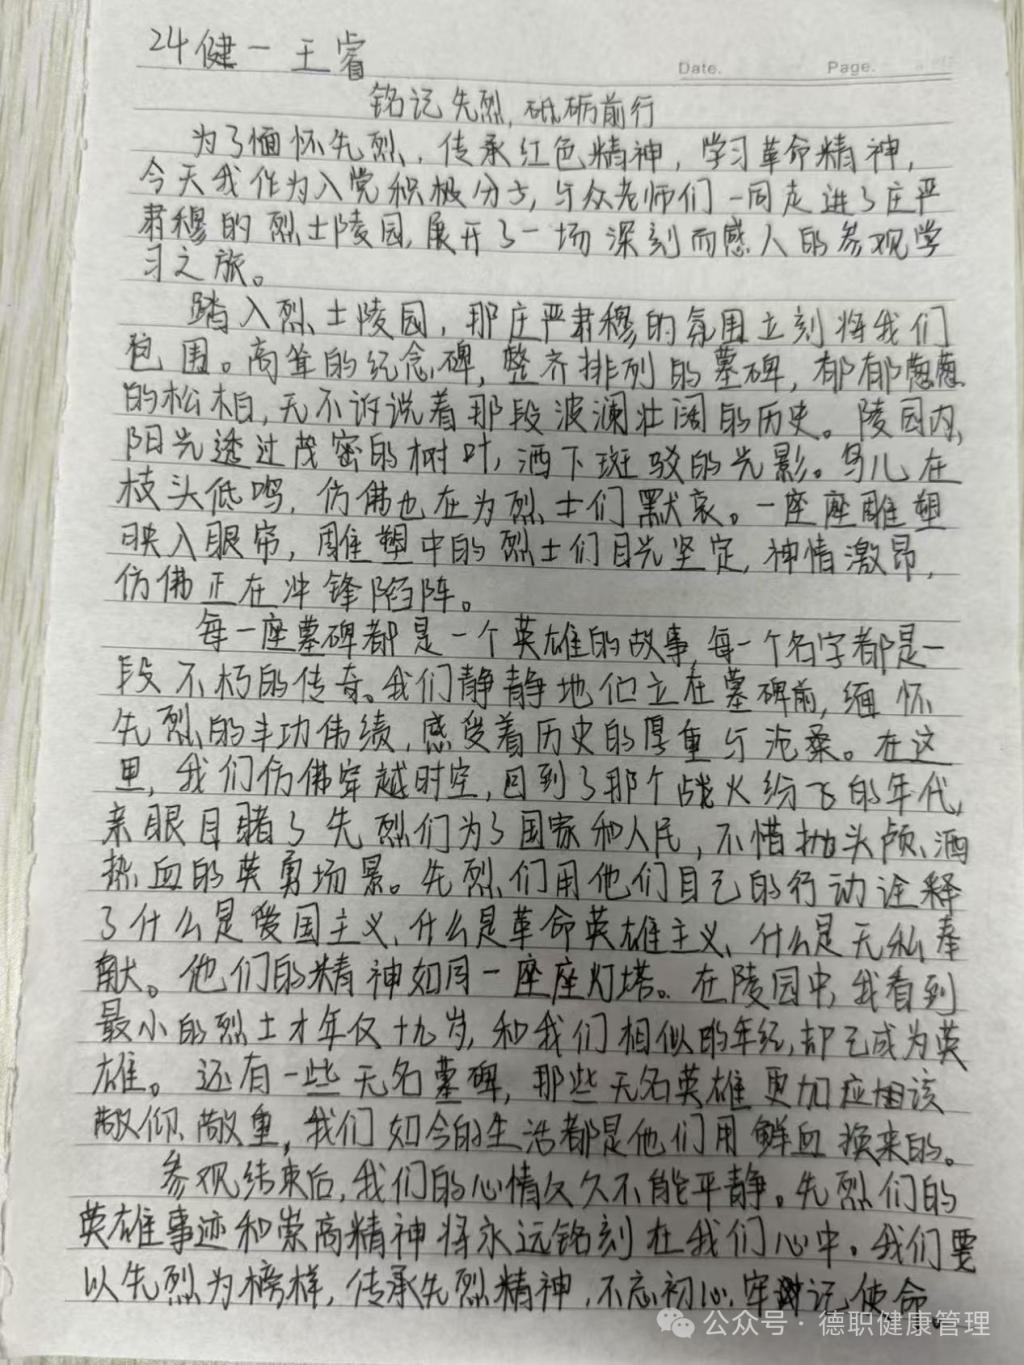 24健一王睿
Date.
Page.
铭记先烈,砥砺前行
为了缅怀先烈,传承红色精神,学习革命精神,
今天我作为入党积极分子,与众老师们一同走进了庄严
肃穆的烈士陵园,展开了一场深刻而感人的参观学
习之旅。
踏入烈士陵园,那庄严肃穆的氛围立刻将我们
包围。高耸的纪念碑,整齐排列的墓碑,郁郁葱葱
的松柏,无不诉说着那段波澜壮阔的历史。陵园内,
阳光透过茂密的树叶,洒下斑驳的光影。鸟儿在
枝头低鸣,仿佛也在为烈士们默哀。一座座雕塑
映入眼帘,雕塑中的烈士们目光坚定,神情激昂,
仿佛正在冲锋陷阵。
每一座墓碑都是一个英雄的故事,每一个名字都是一
段不朽的传奇。我们静静地伫立在墓碑前,缅怀
先烈的丰功伟绩,感受着历史的厚重与沧桑。在这
里,我们仿佛穿越时空,回到了那个战火纷飞的年代,
亲眼目睹了先烈们为了国家和人民,不惜抛头颅、洒
热血的英勇场景。先烈们用他们自己的行动诠释
了什么是爱国主义、什么是革命英雄主义、什么是无私奉
献。他们的精神如同一座座灯塔。在陵园中,我看到
最小的烈士才年仅十九岁,和我们相似的年纪,却已成为英
雄。还有一些无名墓碑,那些无名英雄更加应相该
敬仰、敬重,我们如今的生活都是他们用鲜血换来的。
参观结束后,我们的心情久久不能平静。先烈们的
英雄事迹和崇高精神将永远铭刻在我们心中。我们要
以先烈为榜样,传承先烈精神,不忘初心,牢记使命。
公众号·德职健康管理